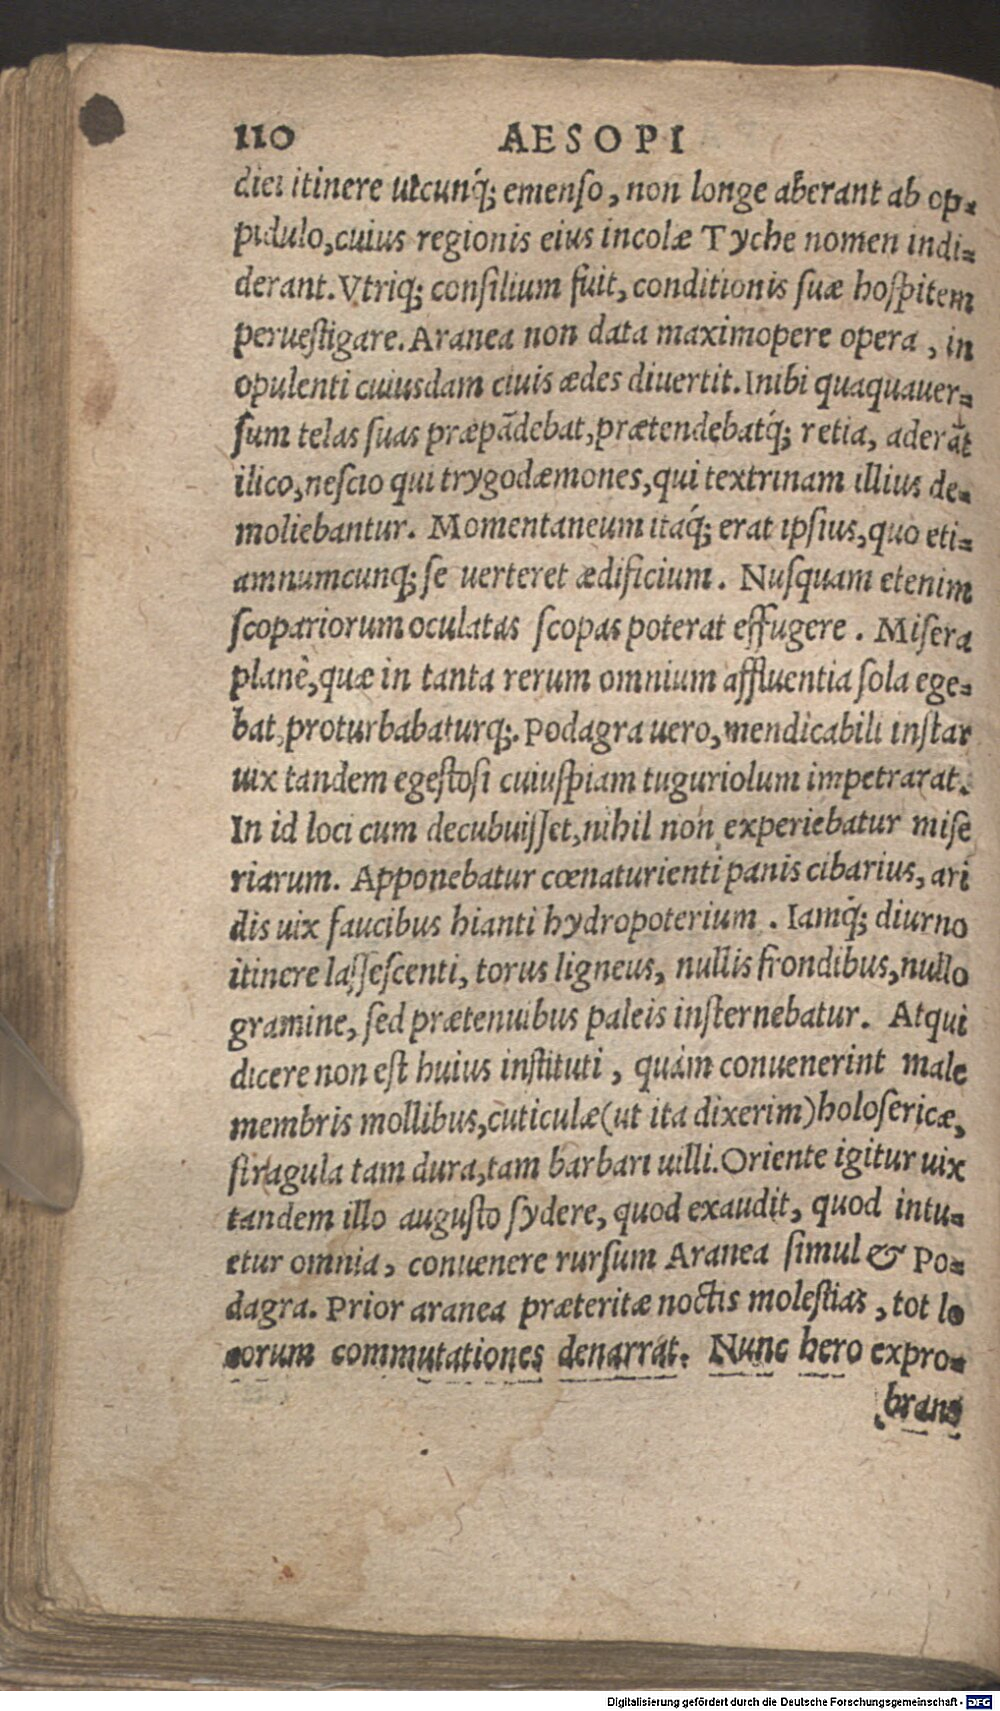 110 AESOPI
diei itinere utcunq́; emenso, non longe aberant ab op-
pidulo, cuius regionis eius incolæ Tyche nomen indi-
derant. Vtriq; consilium fuit, conditionis suæ hospitem
peruestigare. Aranea non data maximopere opera, in
opulenti cuiusdam ciuis ædes diuertit. Inibi quaquauer-
sum telas suas præpãdebat, prætendebatq́; retia, aderãt
ilico, nescio qui trygodæmones, qui textrinam illius de-
moliebantur. Momentaneum itaq́; erat ipsius, quo eti-
amnumcunq; se uerteret ædificium. Nusquam etenim
scopariorum oculatas scopas poterat effugere. Misera
planè, quæ in tanta rerum omnium affluentia sola ege-
bat, proturbabaturq;. Podagra uero, mendicabili instar
uix tandem egestosi cuiuspiam tuguriolum impetrarat.
In id loci cum decubuisset, nihil non experiebatur mise
riarum. Apponebatur cœnaturienti panis cibarius, ari
dis uix faucibus hianti hydropoterium. Iamq́; diurno
itinere lassescenti, torus ligneus, nullis frondibus, nullo
gramine, sed prætenuibus paleis insternebatur. Atqui
dicere non est huius instituti, quàm conuenerint male
membris mollibus, cuticulæ (ut ita dixerim) holosericæ,
stragula tam dura, tam barbari uilli. Oriente igitur uix
tandem illo augusto sydere, quod exaudit, quod intu-
etur omnia, conuenere rursum Aranea simul & Po-
dagra. Prior aranea præteritæ noctis molestias, tot lo
corum commutationes denarrat. Nunc hero expro-
brans
Digitalisierung gefördert durch die Deutsche Forschungsgemeinschaft - DFG